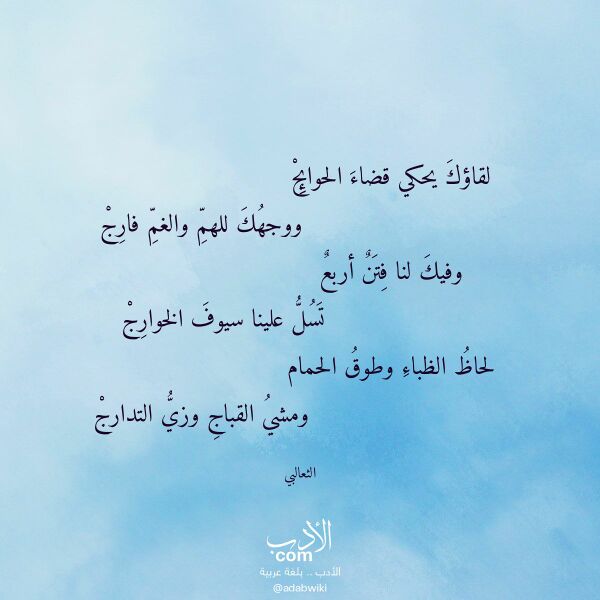 لقاؤكَ يحكي قضاءَ الحوائِجْ
ووجهُكَ للهمِّ والغمِّ فارِجْ
وفيكَ لنا فِتَنٌ أربعٌ
تَسُلُّ علينا سيوفَ الخوارِجْ
لحاظُ الظباءِ وطوقُ الحمام
ومشيُ القباجِ وزيُّ التدارجْ
الثعالبي
الأدب
com
الأدب .. بلغة عربية
@adabwiki